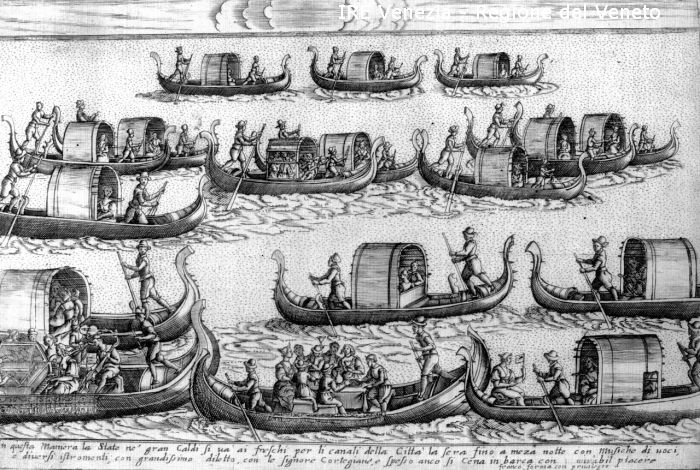 IRE Venezia - Regione del Veneto
n questa Maniera la State ne' gran Caldi si va ai freschi per li canali della Città la sera fino a meza notte con Musiche di voci,
e diversi istromenti, con grandissimo diletto, con le signore Cortegiane, e spesso anco si Cena in barca con mirabil piacere
franco forma con privilegio